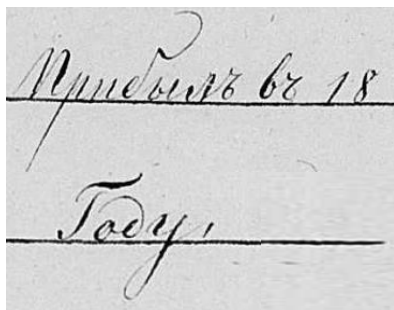 Прибылъ въ 18
Году,